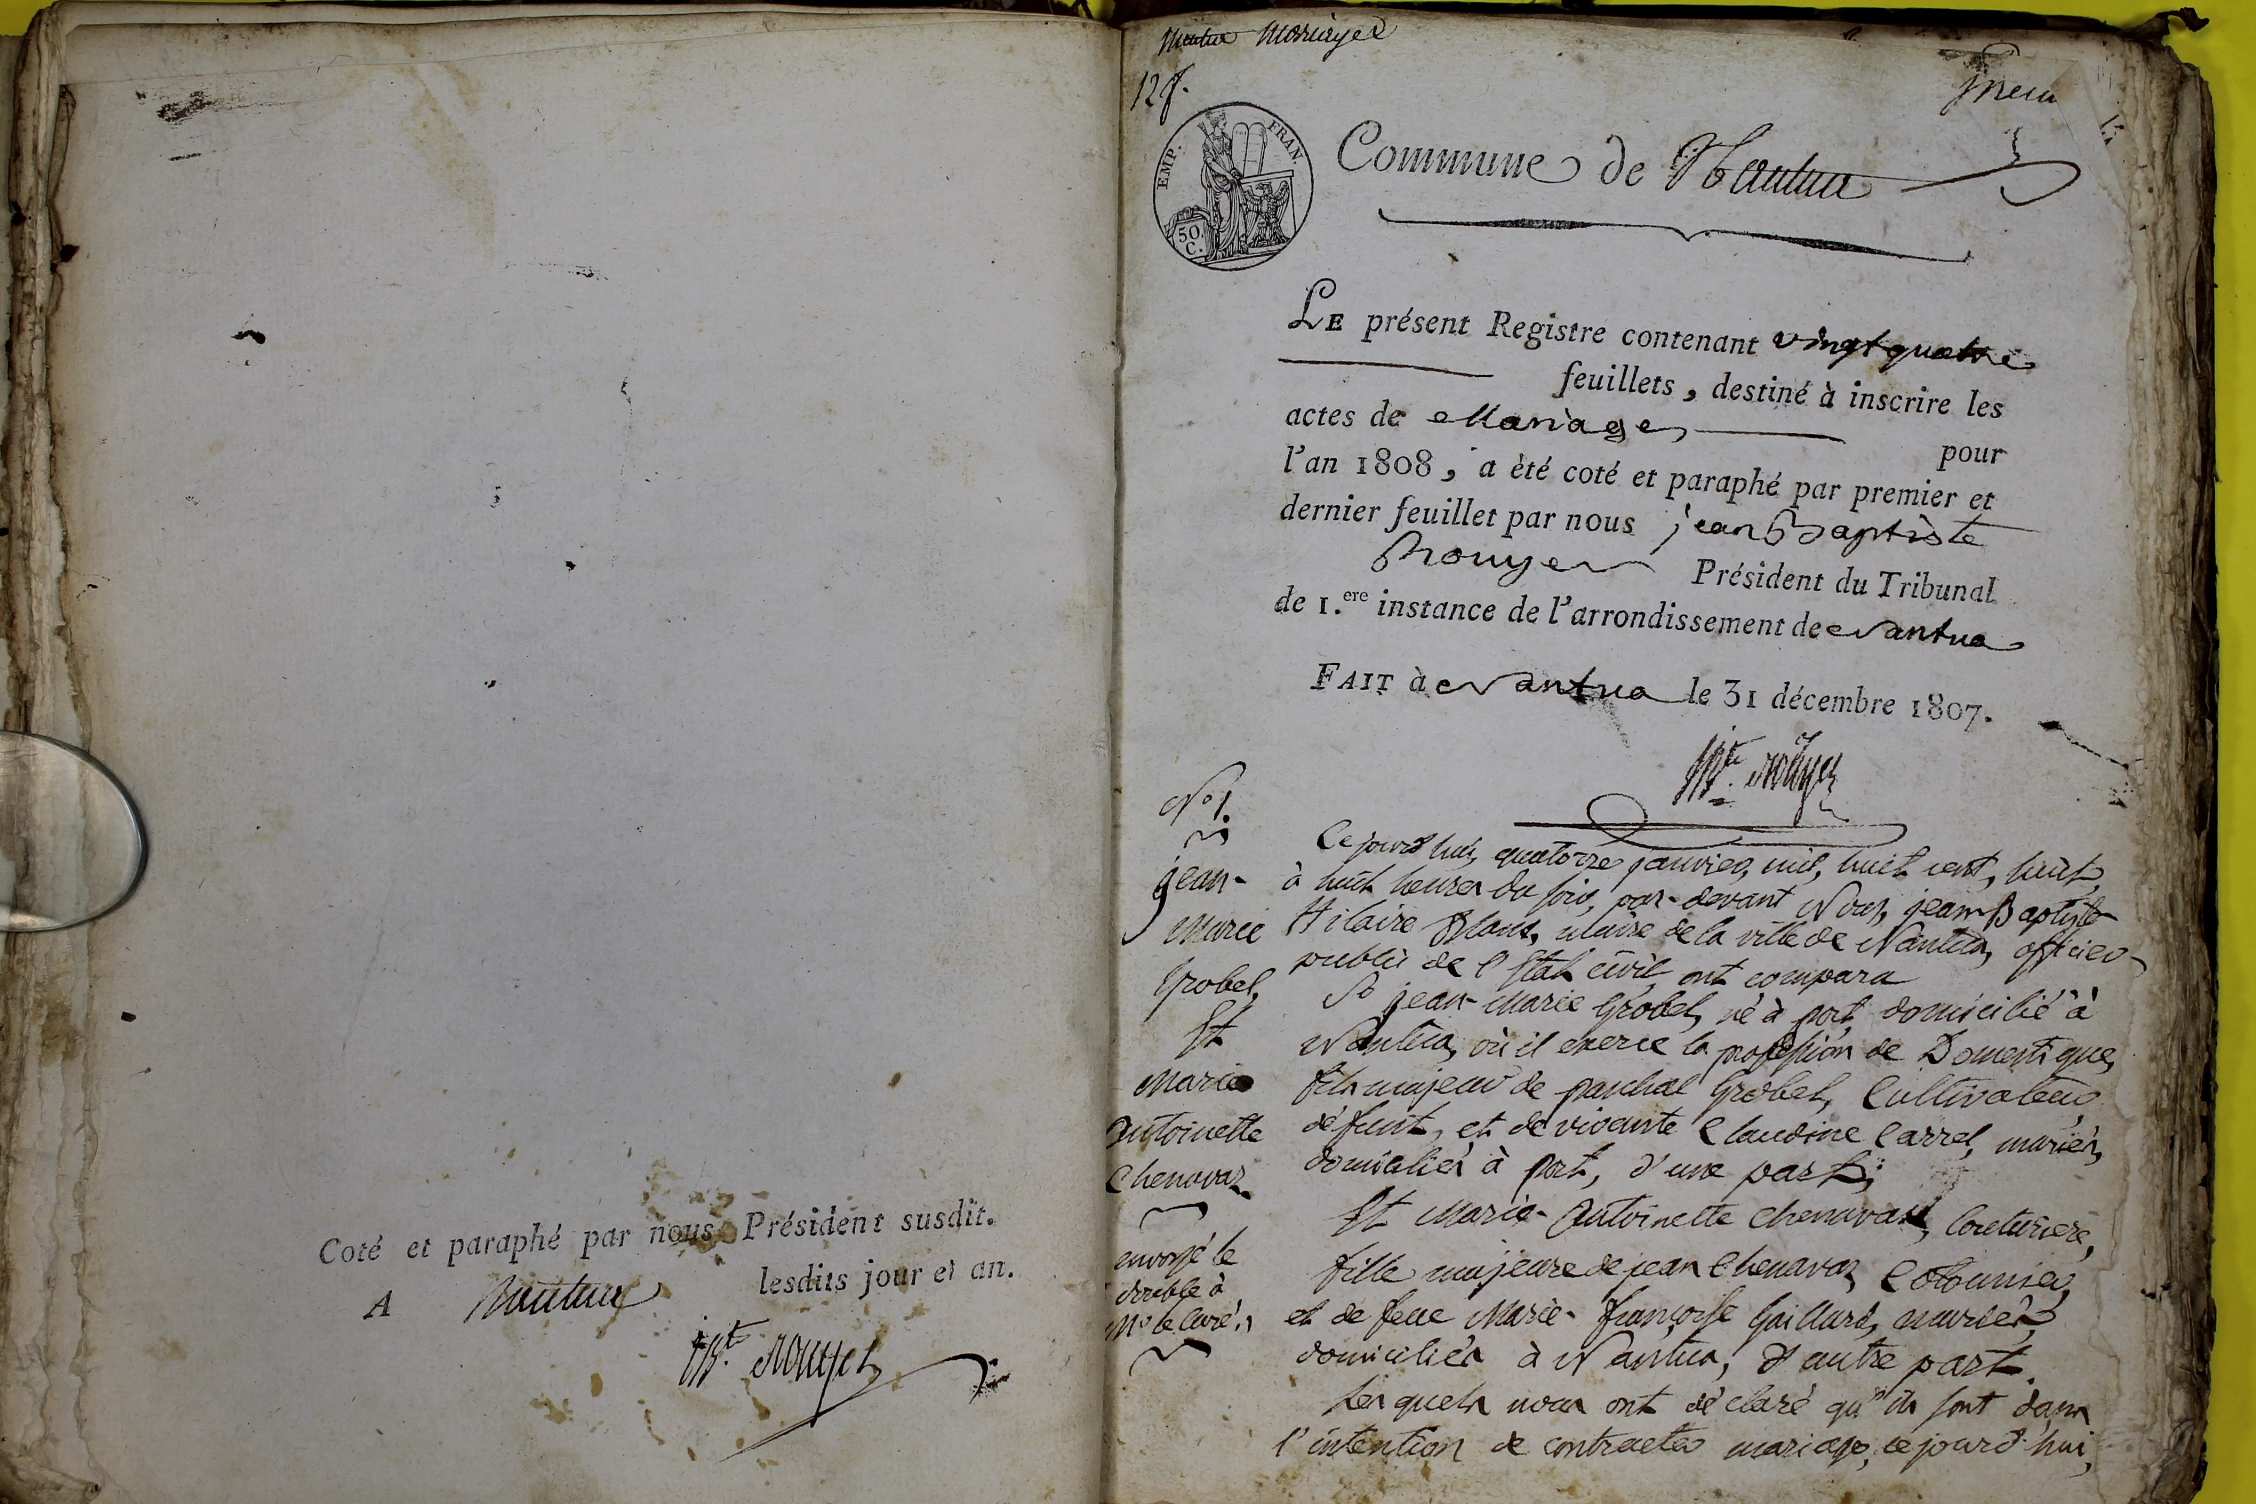 Coté et paraphé par nous Président susdit.
lesdits jour et an.
A Nantua
Mariages
12 f.
EMP. FRAN.
50 C.
Commune de Nantua
LE présent Registre contenant vingt quatre
feuillets, destiné à inscrire les
actes de Mariages pour
l'an 1808, a èté coté et paraphé par premier et
dernier feuillet par nous jean Baptiste
Rouyer Président du Tribunal
de 1.ere instance de l'arrondissement de Nantua
FAIT à Nantua le 31 décembre 1807.
N° 1.
jean-
Marie
Grobel,
Et
Marie
Antoinette
Chenavaz
envoyé le
double à
Mr le Curé.
Cejourd'hui, quatorze janvier, mil, huit cent, huit,
à huit heures du soir, par-devant Nous, jean-Baptiste
Hilaire maire de la ville de Nantua, officier
public de l'Etat civil, ont comparu
Sr jean-Marie Grobel, né à port, domicilié à
Nantua, où il exerce la profession de Domestique,
fils majeur de paschal Grobel, Cultivateur,
défunt, et de vivante Claudine Carrel, mariés,
domiciliés à port, d'une part;
Et Marie-Antoinette Chenavaz, Couturière,
fille majeure de jean Chenavaz, Cotonnier,
et de feue Marie-françoise Gaillard, mariés,
domiciliés à Nantua, d'autre part.
Lesquels nous ont déclaré qu'ils sont dans
l'intention de contracter mariage, cejourd'hui,